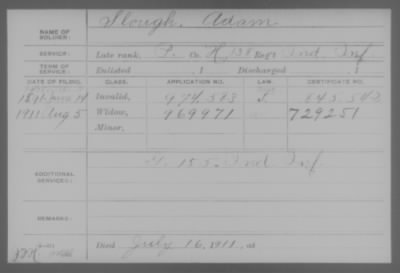 NAME OF SOLDIER: Slough, Adam
SERVICE: Late rank, P. Co. H, 138 Reg't Ind. Inf.
TERM OF SERVICE: Enlisted , 1 Discharged , 1
DATE OF FILING. CLASS. APPLICATION NO. LAW. CERTIFICATE NO.
14 Invalid, 974.583 J. 845.542
1911 Aug 5 Widow, 969971 729251
Minor,
ADDITIONAL SERVICES: 155 Ind. Inf.
REMARKS:
Died July 16, 1911, at